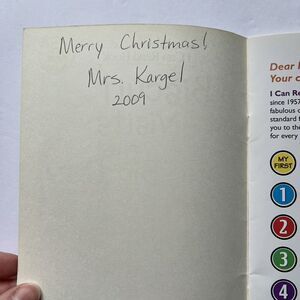 Merry Christmas!
Mrs. Kargel
2009
Dear
Your c
I Can Re
since 1957
fabulous c
standard
you to the
for every
MY
FIRST
1
2
3
4